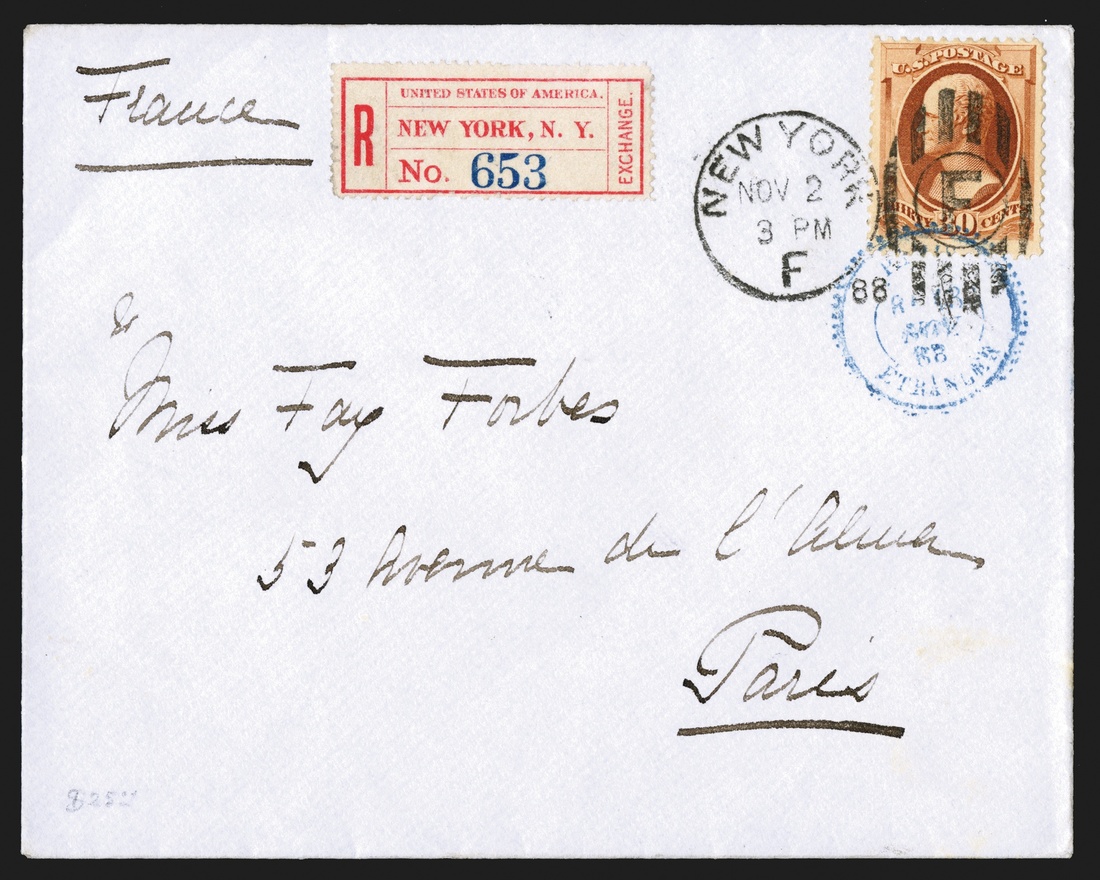 France
R
UNITED STATES OF AMERICA.
NEW YORK, N. Y.
No. 653
EXCHANGE.
NEW YORK
NOV 2
3 PM
F
88
U.S. POSTAGE
F
THIRTY 30 CENTS
ETRANGER
88
Miss Fay Forbes
53 Avenue de l'Alma
Paris